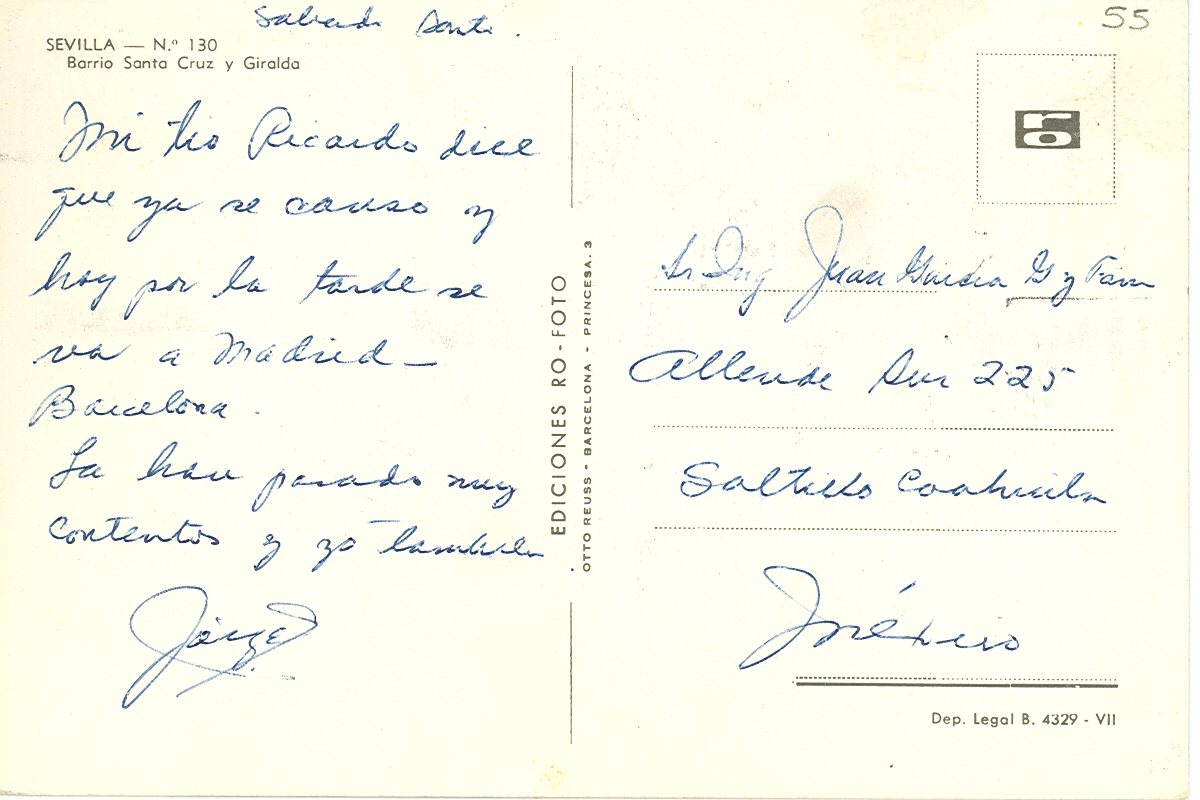 Sabado Santo.
55
SEVILLA — N.º 130
Barrio Santa Cruz y Giralda
Mi tio Ricardo dice
que ya se canso y
hoy por la tarde se
va a Madrid—
Barcelona.
La han pasado muy
contentos y yo tambien
Jorge
EDICIONES RO-FOTO
OTTO REUSS - BARCELONA - PRINCESA. 3
ro
Sr Ing Juan Garcia G y Fam
Allende Sur 225
Saltillo Coahuila
México
Dep. Legal B. 4329 - VII